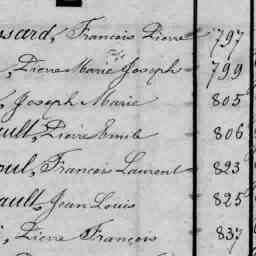 ssard, François Pierre 797
, Pierre Marie Joseph 799
, Joseph Marie 805
ault, Pierre Emile 806
oul, François Laurent 823
ault, Jean Louis 825
, Pierre François 837